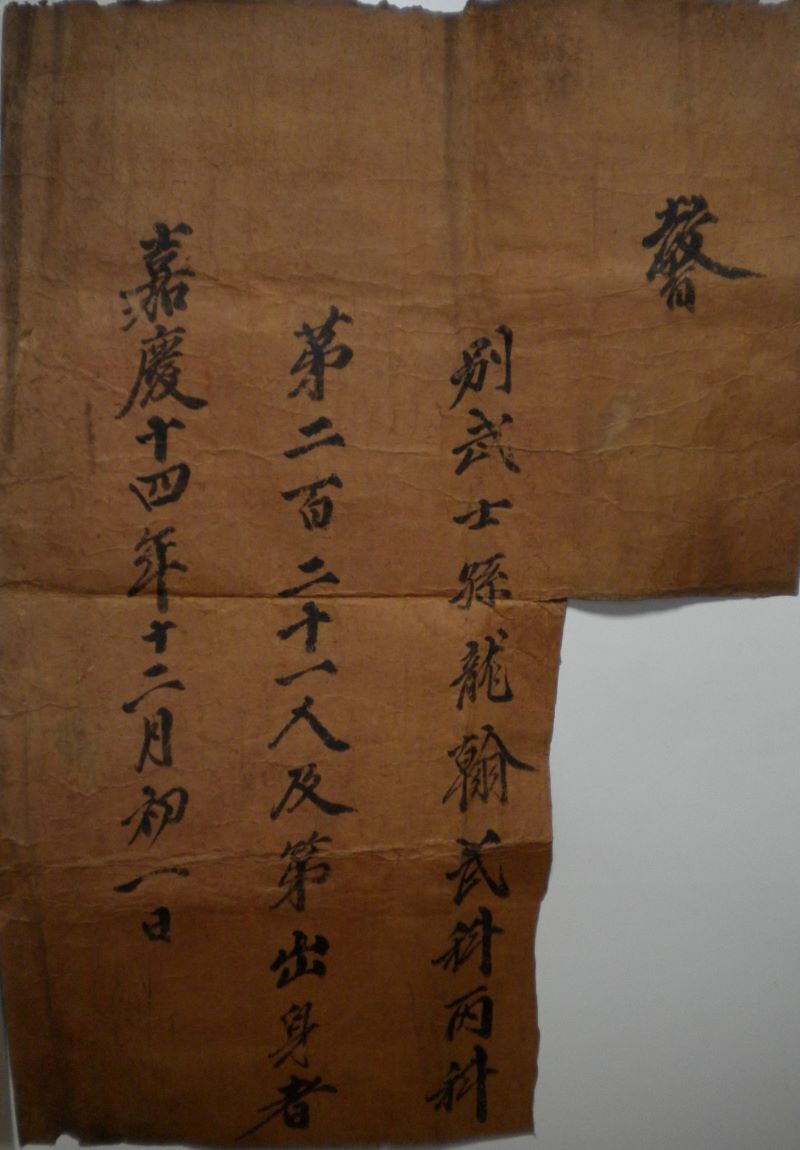 敎旨
別武士孫龍翰武科丙科
苐二百二十一人及第出身者
嘉慶十四年十二月初一日